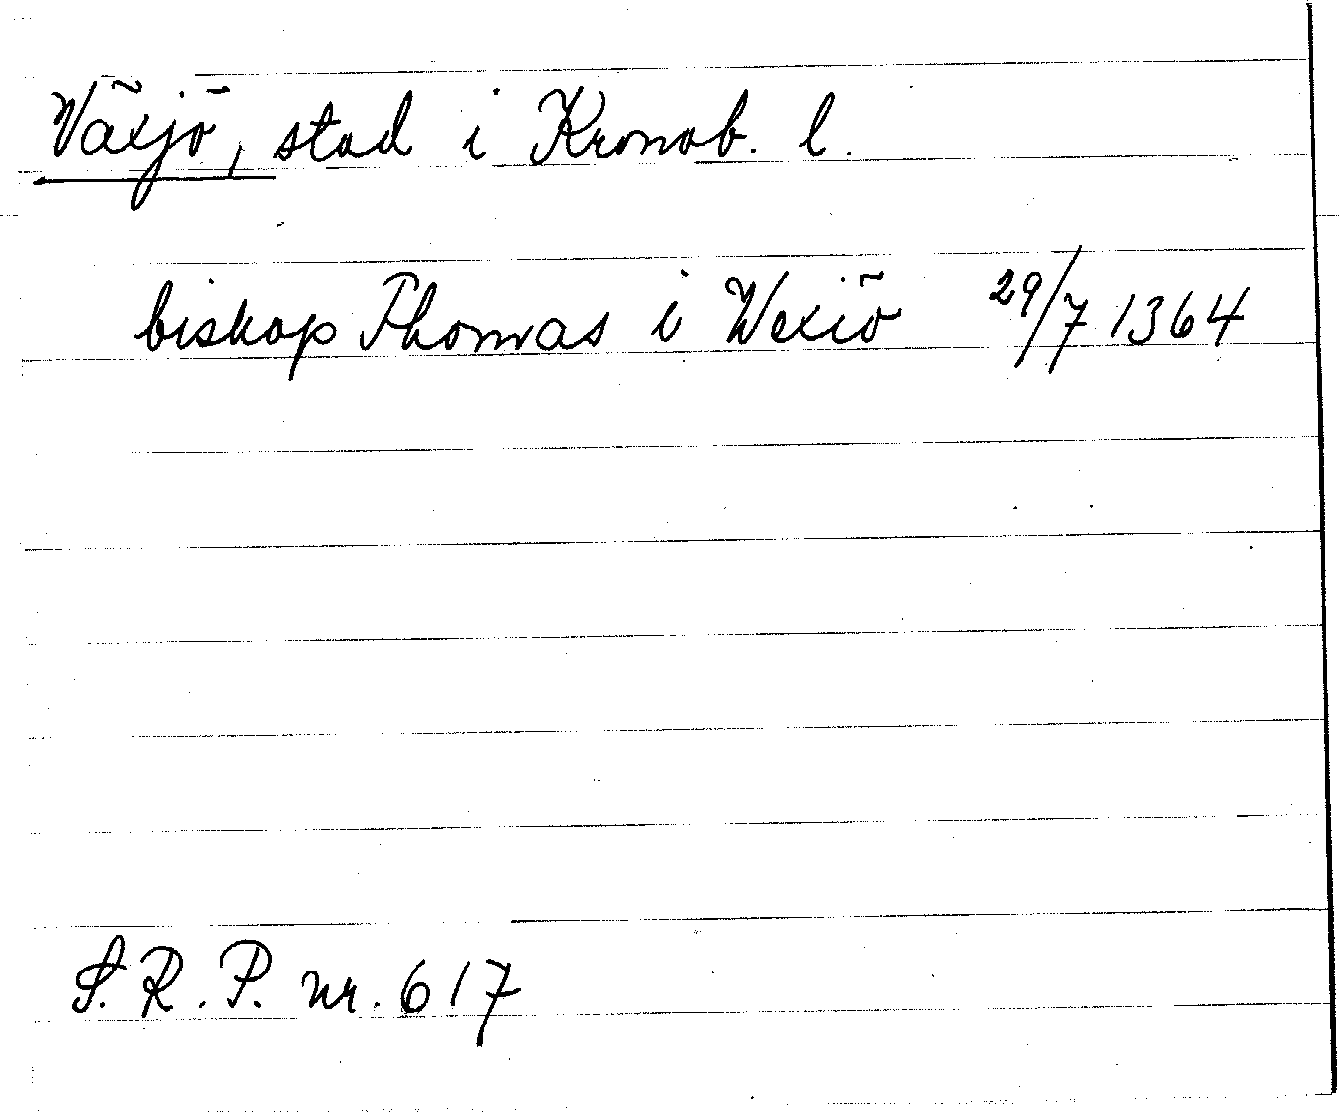 Växjö, stad i Kronob. l.
biskop Thomas i Wexiö 29/7 1364
S.R.P. nr. 617